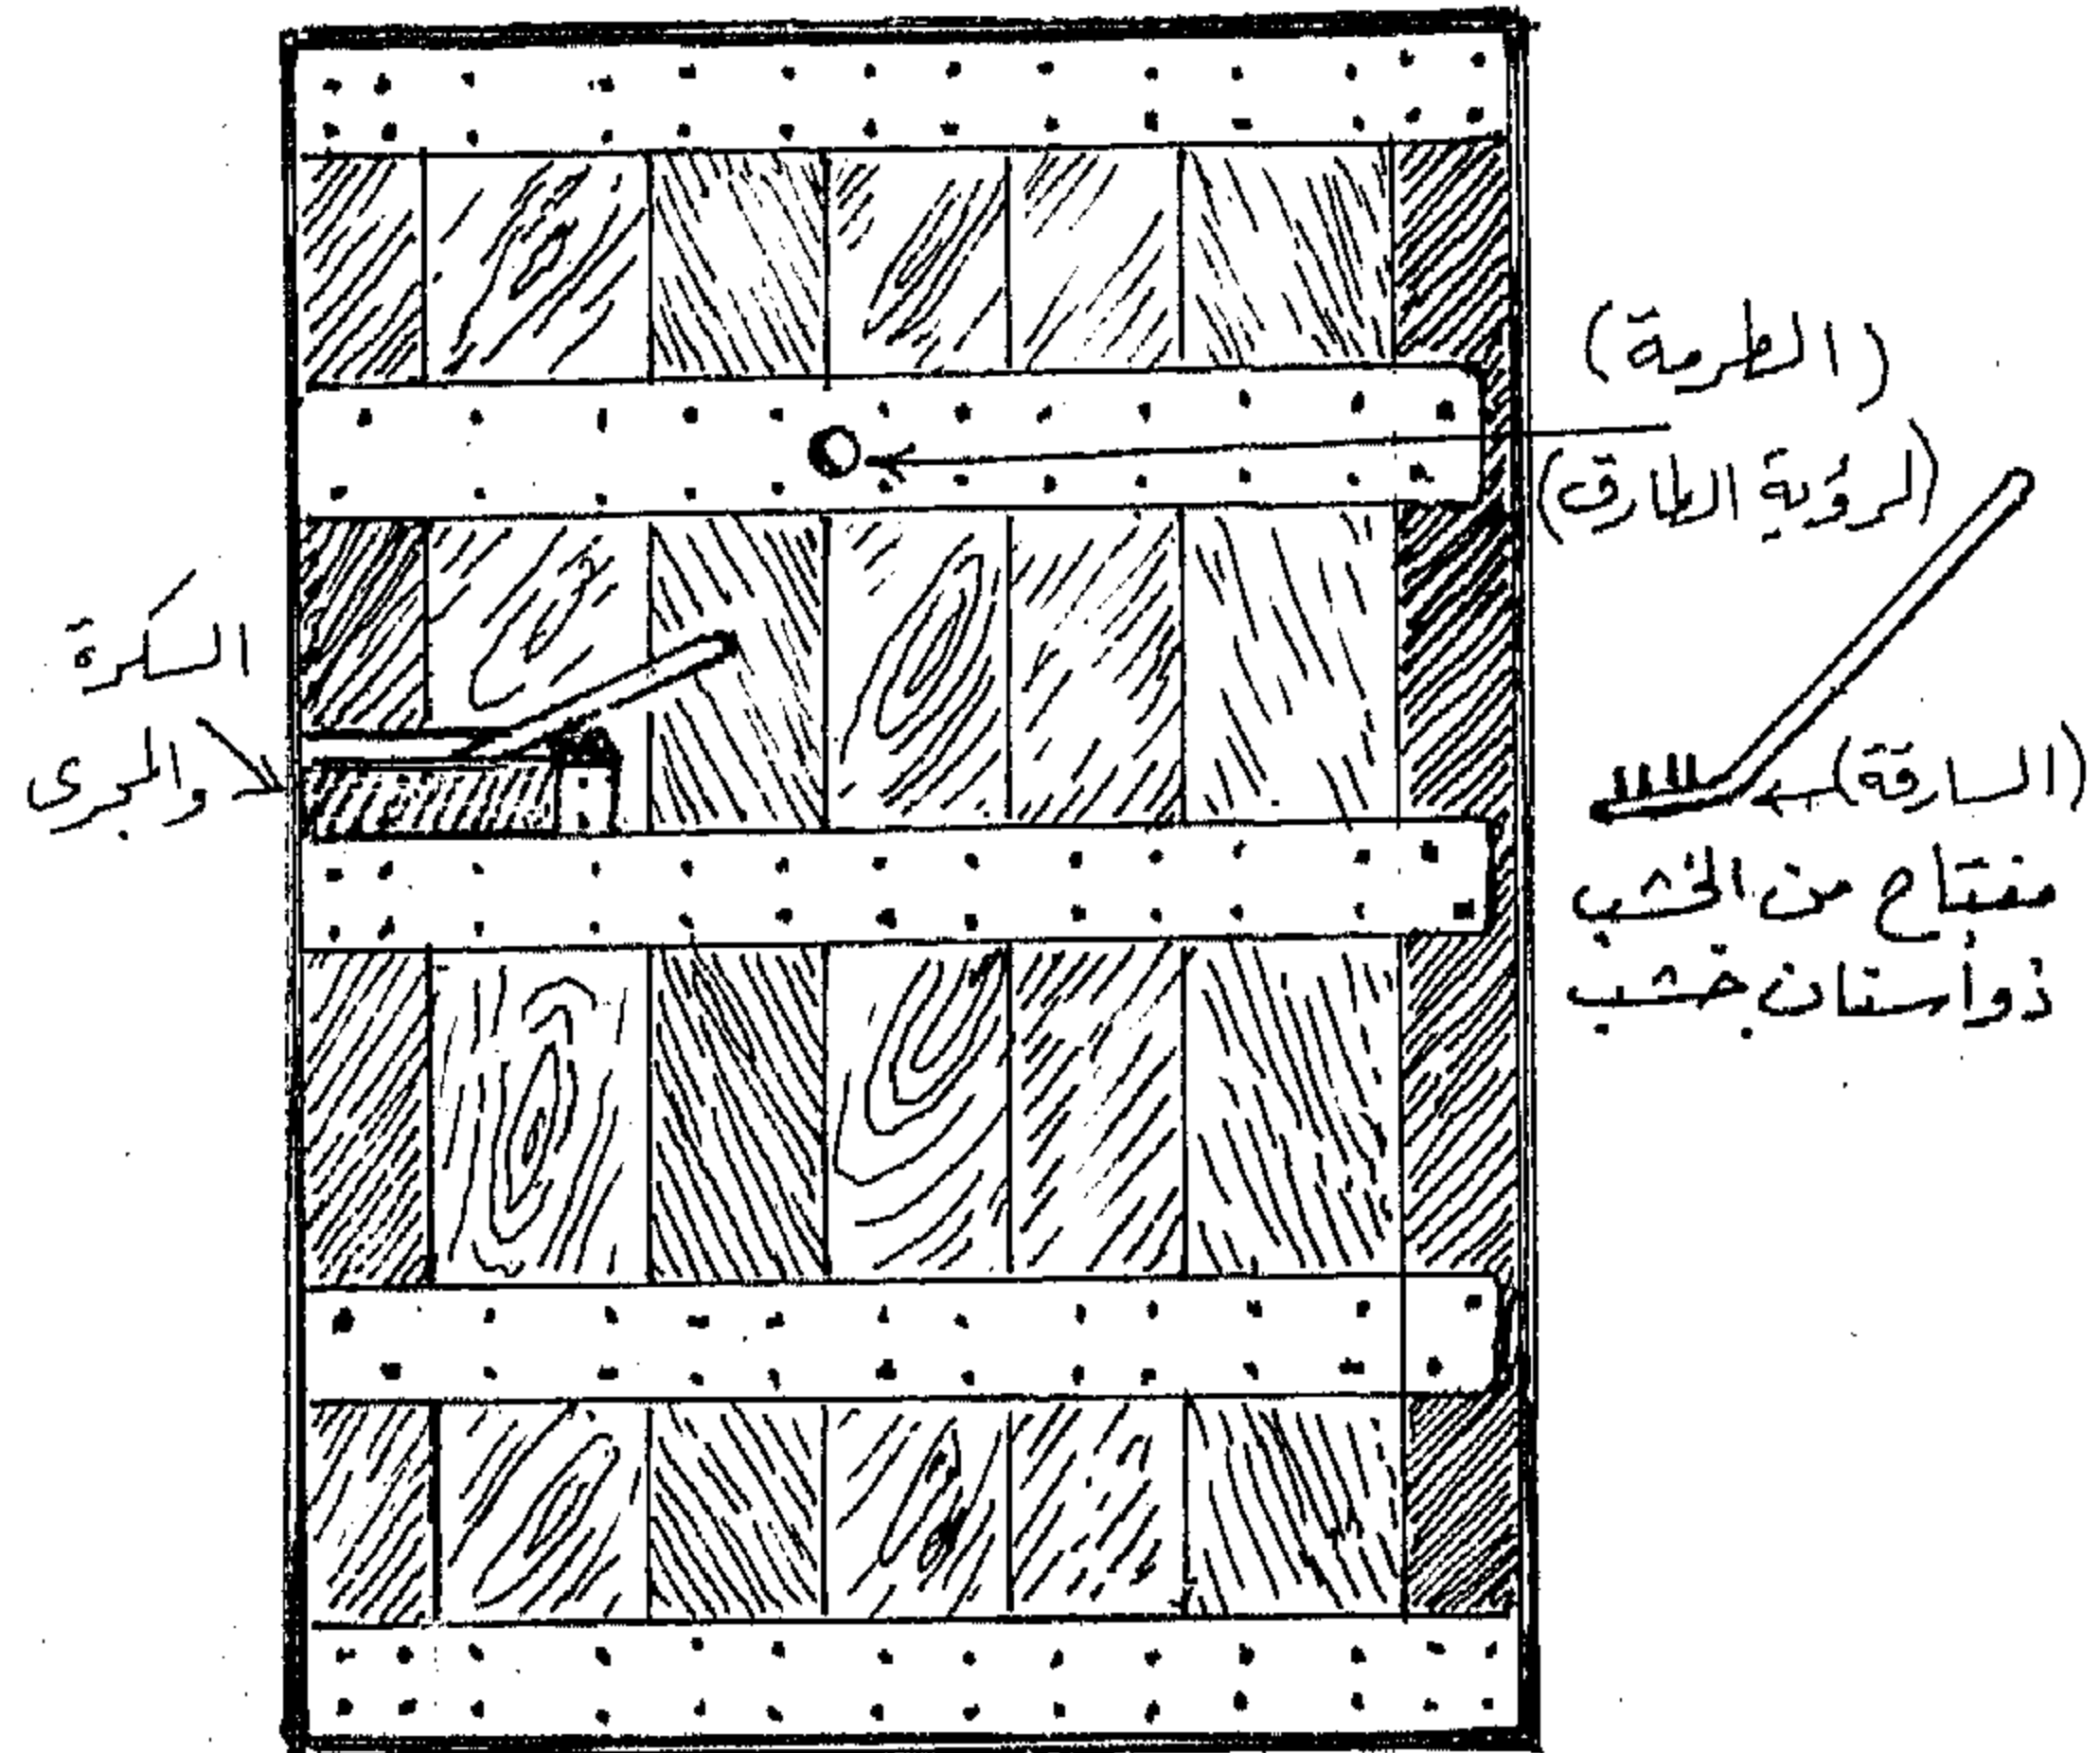 (الطرمة)
(لرؤية الطارق)
السكرة
والمجرى
(السارقة)
مفتاح من الخشب
ذو أستان خشب